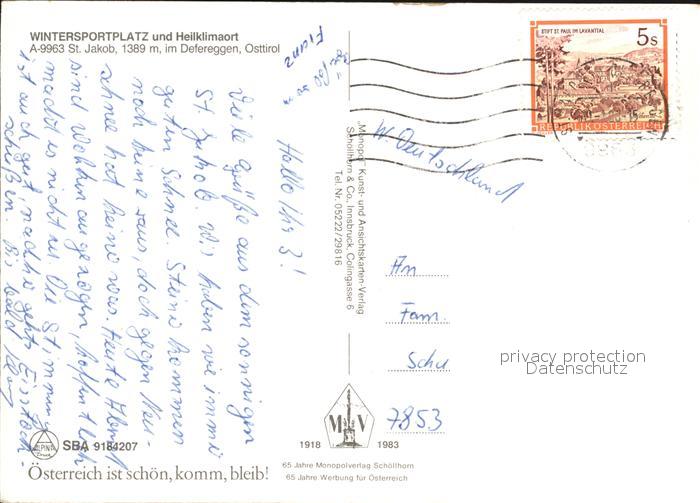 WINTERSPORTPLATZ und Heilklimaort
A-9963 St. Jakob, 1389 m, im Defereggen, Osttirol
Hallo Ihr 3!
Viele Grüße aus dem sonnigen
St. Jakob. Wir haben wie immer
guten Schnee. Steine kommen
noch keine raus, doch gegen Neu-
schnee hat keine was. Heute Abend
sind Wolken aufgezogen, hoffentlich
macht es nicht zu. Die Stimmung
ist auch gut, nachher gehts Eisstock-
schießen. Bis bald
Franz
"Monopol" Kunst- und Ansichtskarten-Verlag
Schöllhorn & Co., Innsbruck, Colingasse 6
Tel. Nr. 05222/29816
STIFT ST. PAUL IM LAVANTTAL
5 S
REPUBLIK ÖSTERREICH
W. Deutschland
An
Fam.
Schu
7853
privacy protection
Datenschutz
M V
1918 1983
65 Jahre Monopolverlag Schöllhorn
65 Jahre Werbung für Österreich
ALPINA
Druck
SBA 9184207
Österreich ist schön, komm, bleib!